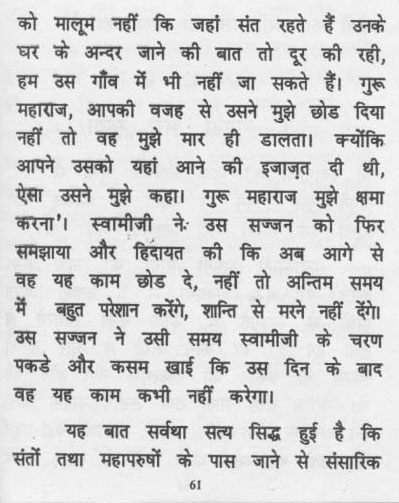 को मालूम नहीं कि जहां संत रहते हैं उनके
घर के अन्दर जाने की बात तो दूर की रही,
हम उस गाँव में भी नहीं जा सकते हैं। गुरू
महाराज, आपकी वजह से उसने मुझे छोड दिया
नहीं तो वह मुझे मार ही डालता। क्योंकि
आपने उसको यहां आने की इजाज़त दी थी,
ऐसा उसने मुझे कहा। गुरू महाराज मुझे क्षमा
करना'। स्वामीजी ने उस सज्जन को फिर
समझाया और हिदायत की कि अब आगे से
वह यह काम छोड दे, नहीं तो अन्तिम समय
में बहुत परेशान करेंगे, शान्ति से मरने नहीं देंगे।
उस सज्जन ने उसी समय स्वामीजी के चरण
पकडे और कसम खाई कि उस दिन के बाद
वह यह काम कभी नहीं करेगा।
यह बात सर्वथा सत्य सिद्ध हुई है कि
संतों तथा महापरुषों के पास जाने से संसारिक
61